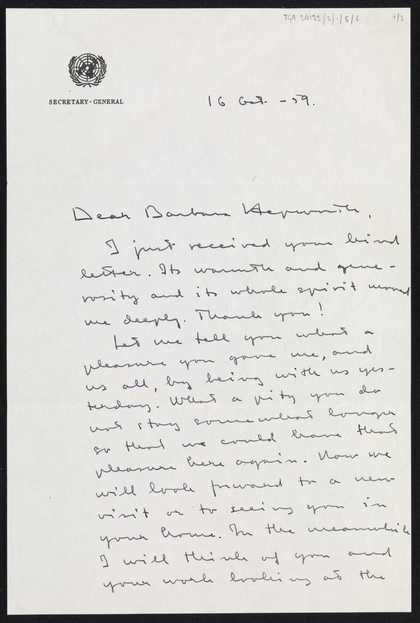 TGA 20132/2/1/5/6 1/2
SECRETARY-GENERAL
16 Oct. -59.
Dear Barbara Hepworth,
I just received your kind
letter. Its warmth and gene-
rosity and its whole spirit moved
me deeply. Thank you!
Let me tell you what a
pleasure you gave me, and
us all, by being with us yes-
terday. What a pity you do
not stay somewhat longer
so that we could have that
pleasure here again. Now we
will look forward to a new
visit or to seeing you in
your home. In the meanwhile
I will think of you and
your work looking at the